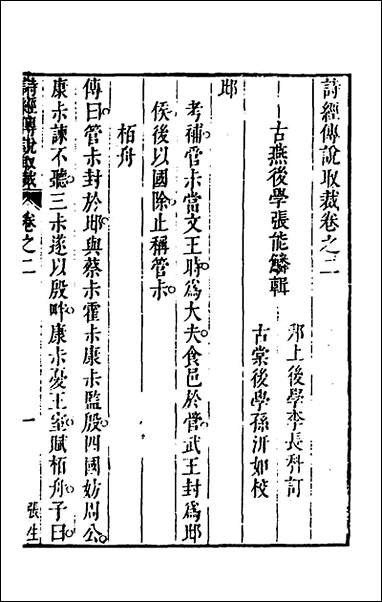 詩經傳說取裁卷之二
古燕後學張能鱗輯
邗上後學李長科訂
古棠後學孫沂如校
邶
考補管叔當文王時爲大夫食邑於管武王封爲邶
侯後以國除止稱管叔
柏舟
傳曰管叔封於邶與蔡叔霍叔康叔監殷四國妨周公
康叔諫不聽三叔遂以殷畔康叔憂王室賦柏舟子曰
詩經傳說取裁
卷之二
一
張生